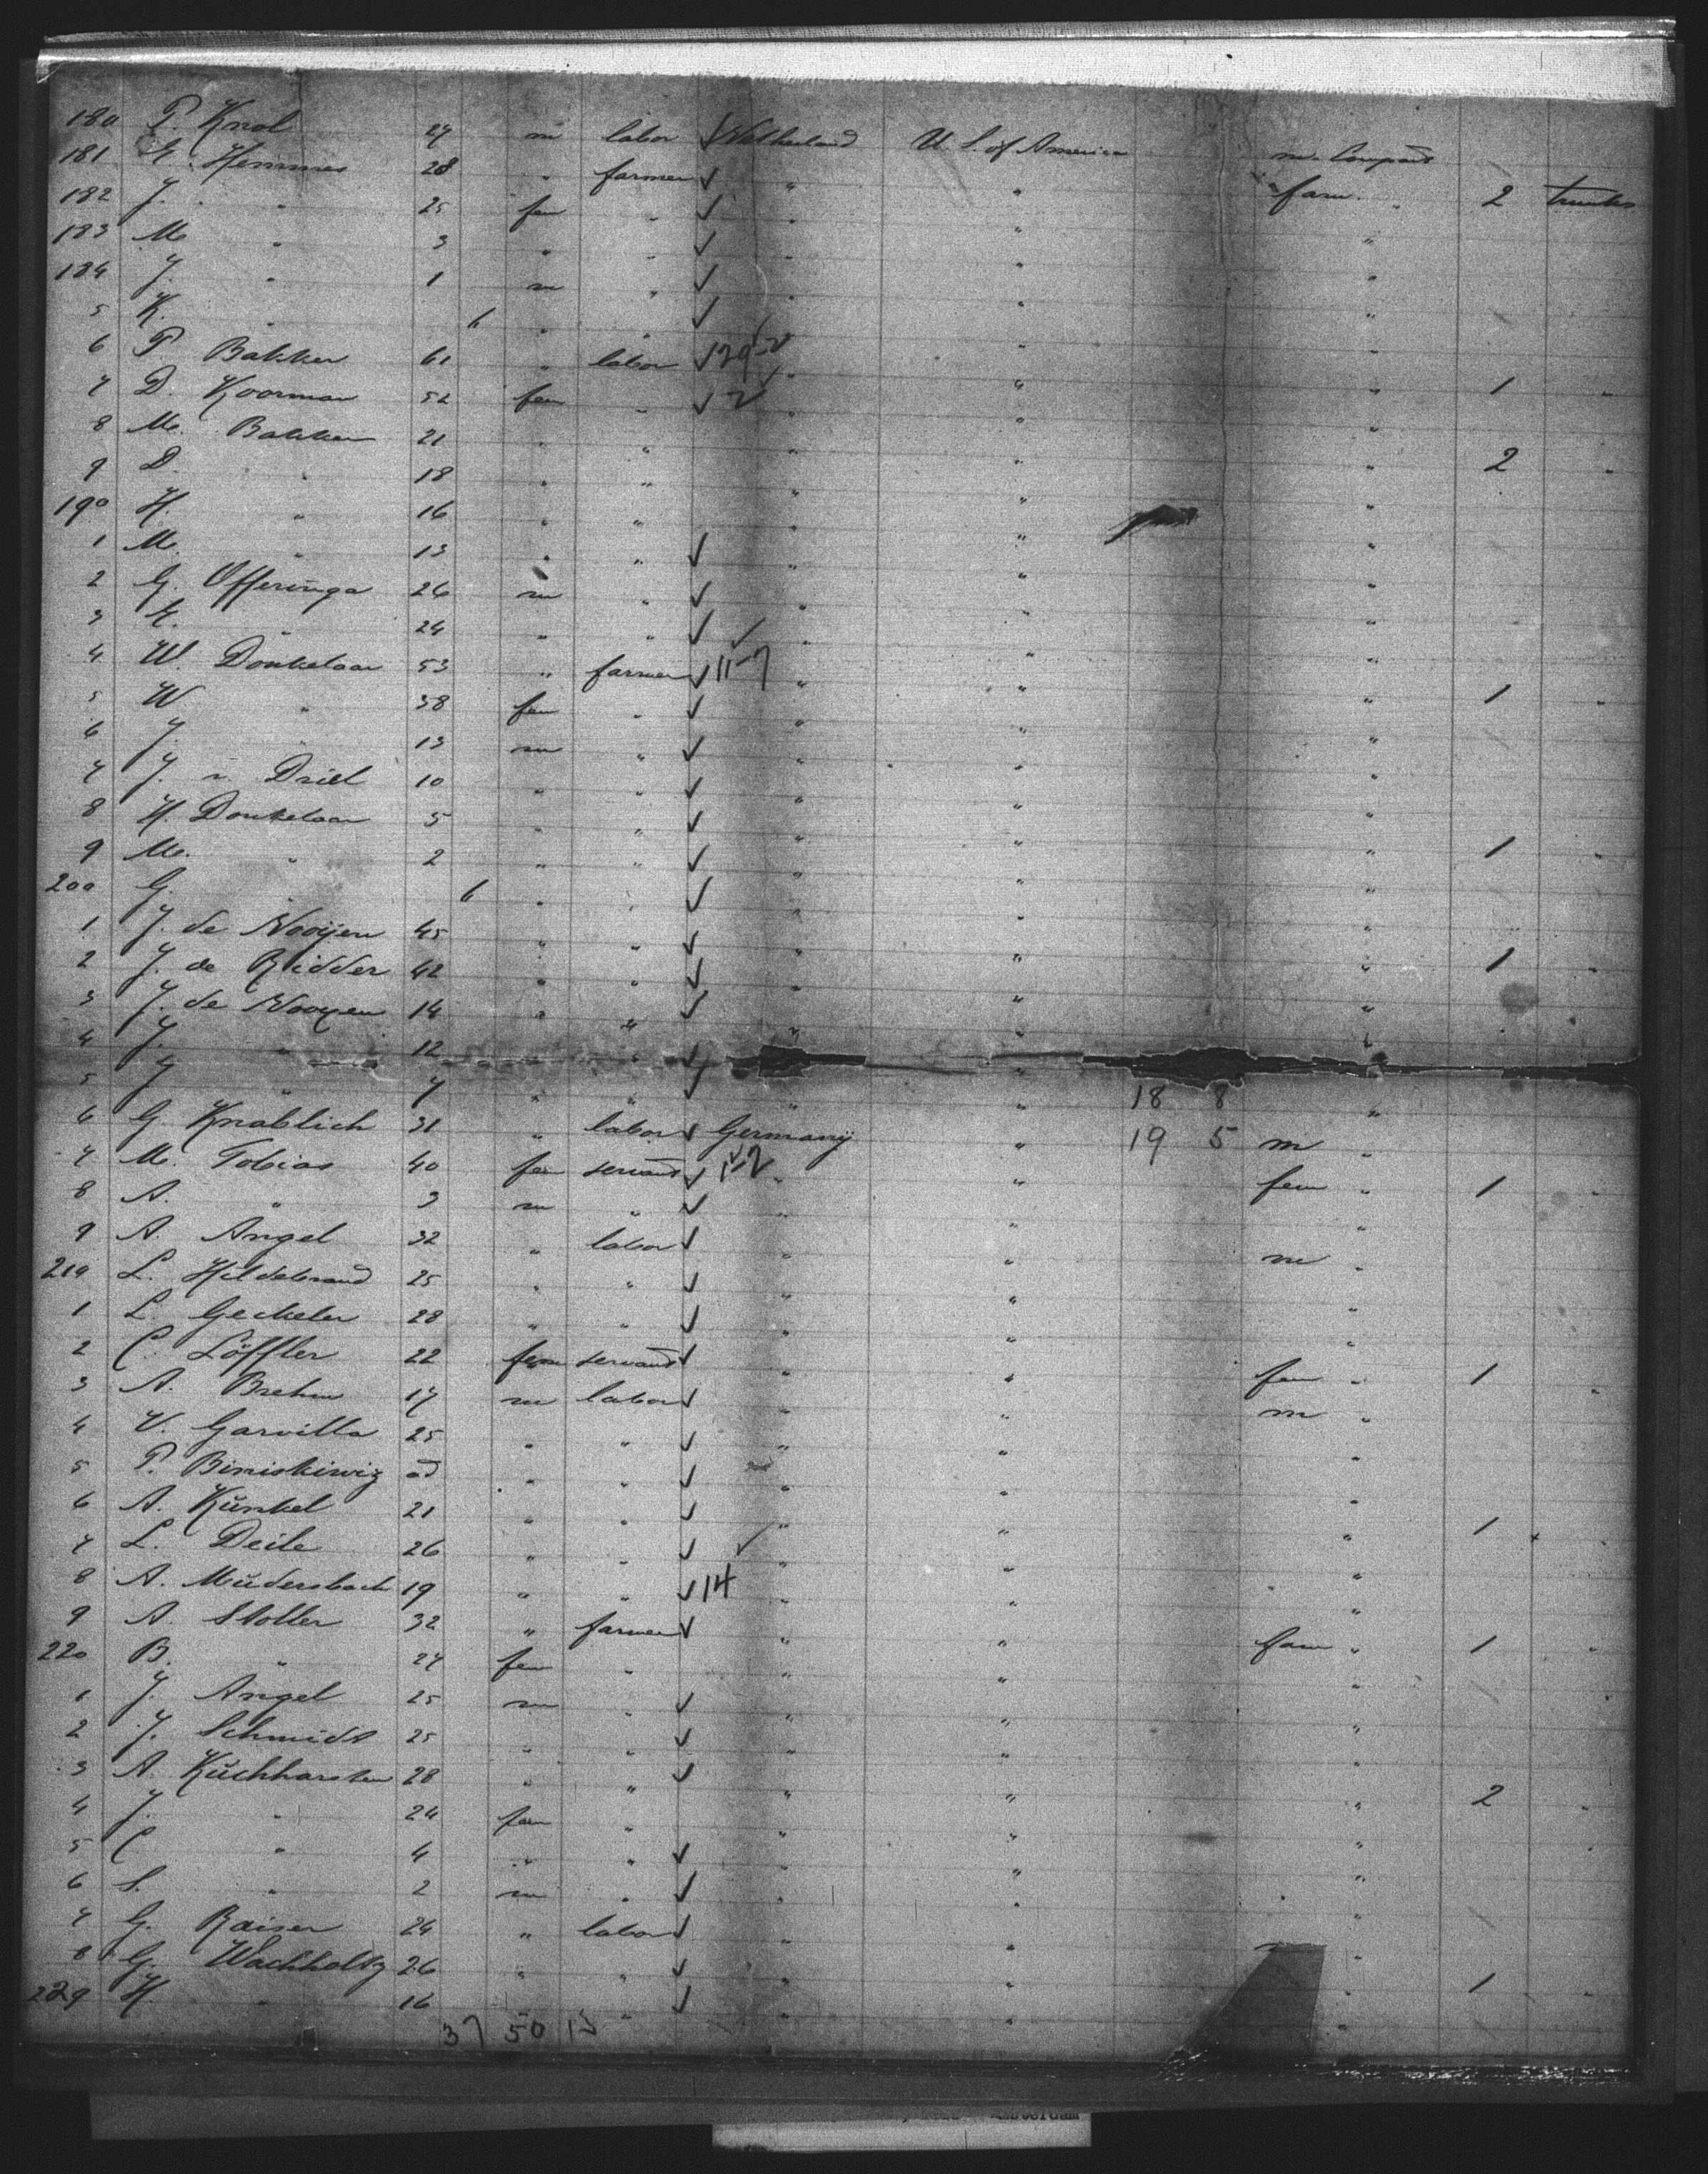 180 P. Knol 27 m labor ✓ Netherland U. S. of America m. Compart
181 E. Hemmes 28 " farmer ✓ " " fam. " 2 trunks
182 J. " 25 fem " ✓ " " "
183 M. " 3 " " ✓ " " "
184 J. " 1 m " ✓ " " "
5 K. " 6 " " ✓ " " "
6 P. Bakker 61 " labor ✓ 29-2 " " " 1 "
7 D. Koorman 52 fem " ✓ 2 " " "
8 M. Bakker 21 " " " " " 2 "
9 D. " 18 " " " " "
190 H. " 16 " " " " "
1 M. " 13 " " ✓ " " "
2 G. Offeringa 26 m " ✓ " " "
3 E. " 24 " " ✓ " " "
4 W. Donkelaar 53 " farmer ✓ 11-7 " " " 1 "
5 W " 38 fem " ✓ " " "
6 J. " 13 m " ✓ " " "
7 J. v. Driel 10 " " ✓ " " "
8 H. Donkelaar 5 " " ✓ " " "
9 M. " 2 " " ✓ " " " 1 "
200 G. " 6 " " ✓ " " "
1 J. de Nooijen 45 " " ✓ " " "
2 J. de Ridder 42 " " ✓ " " " 1 "
3 J. de Nooyen 14 " " ✓ " " "
4 J. " 12 " " ✓ " "
5 J " 7 " " ✓ " " 18 8 "
6 G. Knablich 31 " labor ✓ Germany " 19 5 m "
7 M. Tobias 40 fem servant ✓ 1-2 " " fem " 1 "
8 A. " 3 m " ✓ " " "
9 A. Angel 32 " labor ✓ " " m "
210 L. Hildebrand 25 " " ✓ " " "
1 L. Geckeler 28 " " ✓ " " "
2 C. Löffler 22 fem servant ✓ " " fem " 1 "
3 A. Brehm 17 m labor ✓ " " m "
4 V. Garvilla 25 " " ✓ " " "
5 P. Biniskiwiz ad " " ✓ " " "
6 A. Kŭnkel 21 " " ✓ " " " 1 "
7 L. Deile 26 " " ✓ " " "
8 A. Mŭdersbach 19 " " ✓ 14 " " "
9 A. Stoller 32 " farmer ✓ " " fam " 1 "
220 B. " 27 fem " " " "
1 J. Angel 25 m " ✓ " " "
2 J. Schmidt 25 " " ✓ " " "
3 A. Kŭchharsten 28 " " ✓ " " " 2 "
4 J. " 24 fem " " " "
5 C " 4 " " ✓ " " "
6 S. " 2 m " ✓ " " "
7 G. Raiser 24 " labor ✓ " " "
8 G. Wachholtz 26 " " ✓ " " 1 "
229 H. " 16 " " ✓ " " "
37 50 15
Amsterdam